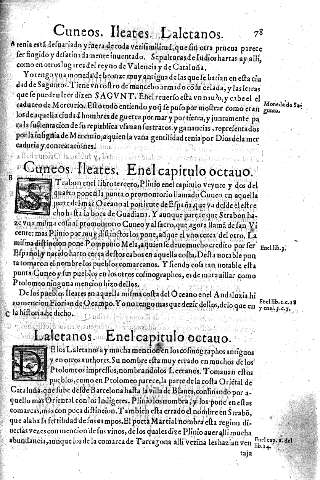 Cuneos. Ileates. Laletanos. 78
A tenia esta desuariado y fuera de toda verisimilitud, que sin otra prueua parece
ser fingido y desatinadamente inuentado. Sepulturas de Iudios hartas ay alli,
como en otros lugares del reyno de Valencia y de Cataluña.
Yo tengo vna moneda de bronze muy antigua de las que se batian en esta ciu
dad de Sagunto. Tiene vn rostro de mancebo armado con celada, y las letras
que se pueden leer dizen SAGVNT. En el reuerso esta vn nauio, y cabe el el
caduceo de Mercurio. Esto todo entiendo yo q̃ se puso por mostrar como eran
los de aquella ciudad hombres de guerra por mar y por tierra, y juntamẽte pa
ra la sustentacion de su republica vsauan sus tratos, y ganancias, representados
por la insignia de Mercurio, a quien la vana gentilidad tenia por Dios de la mer
caduria y contrataciones.
Moneda de Sa
gunto.
Cuneos. Ileates. En el capitulo octauo.
B STrabon en el libro tercero, Plinio en el capitulo veynte y dos del
quarto ponen la punta o promontorio llamado Cuneo en aquella
parte del mar Oceano al poniente de España, que va desde el estre
cho hasta la boca de Guadiana. Y aunque parece que Strabon haz-
ze vna misma cosa al promontorio Cuneo y al sacro, que agora llamã de san Vi
cente: mas Plinio por muy distinctos los pone, assi que el vno esta del otro. La
misma distincion pone Pomponio Mela, a quien se deue mucho credito por ser
Español y nacido harto cerca destos cabos en aquella costa. Desta notable pun
ta tomaron el nombre los pueblos comarcanos. Y siendo cosa tan notable esta
punta Cuneo y sus pueblos en los otros cosmographos, es de marauillar como
Ptolomeo ninguna mencion hizo dellos.
En el lib. 3.
De los pueblos Ileates en aquella misma costa del Oceano en el Andaluzia hi
zo mencion Florian de Ocampo. Yo no tengo mas que dezir dellos, de lo que en
la historia he dicho.
En el lib. 1. c. 28
y en el 3. c. 5.
Laletanos. En el capitulo octauo.
C DE los Laletanos ay mucha mencion en los cosmographos antiguos
y en otros authores. Su nombre esta muy errado en muchos de los
Ptolomeos impressos, nombrandolos Leetanos. Tomauan estos
pueblos, como en Ptolomeo parece, la parte de la costa Oriẽtal de
Cataluña, que sube desde Barcelona hasta la villa de Blanes, confinando por a-
quello mas Oriental con los Indigetes. Plinio los nombra, y los pone en estas
comarcas, mas con poca distincion. Tambien esta errado el nombre en Strabõ,
que alaba la fertilidad de sus campos. El poeta Marcial nombra esta region di-
uersas vezes con mencion de sus vinos, de los quales dize Plinio auer alli mucha
abundancia, aunque los de la comarca de Tarragona alli vezina les hazian ven
taja
En el cap. 6. del
lib. 14.